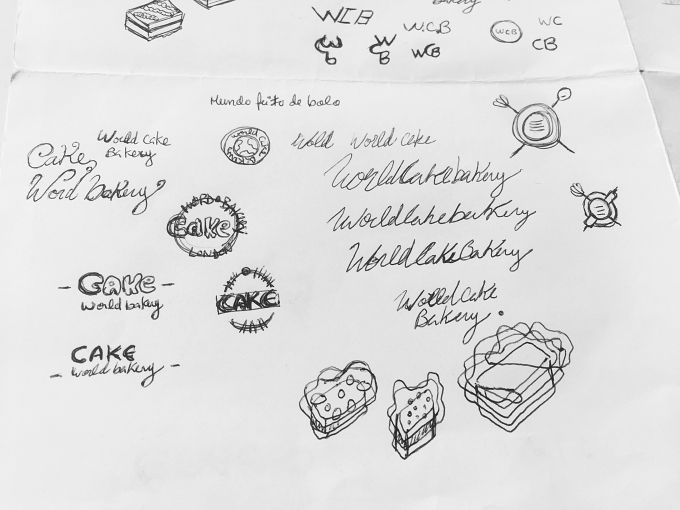 Bakery
WCB
W.C.B
WCB
WC
CB
W
B
WCB
Mundo feito de bolo
World Cake
Bakery
Cake,
Word bakery
World World Cake
WorldCakebakery
WorldCakebakery
WorldCakeBakery
World Cake
Bakery.
Cake
LONDON
- CAKE -
World bakery
CAKE
CAKE
- World bakery -